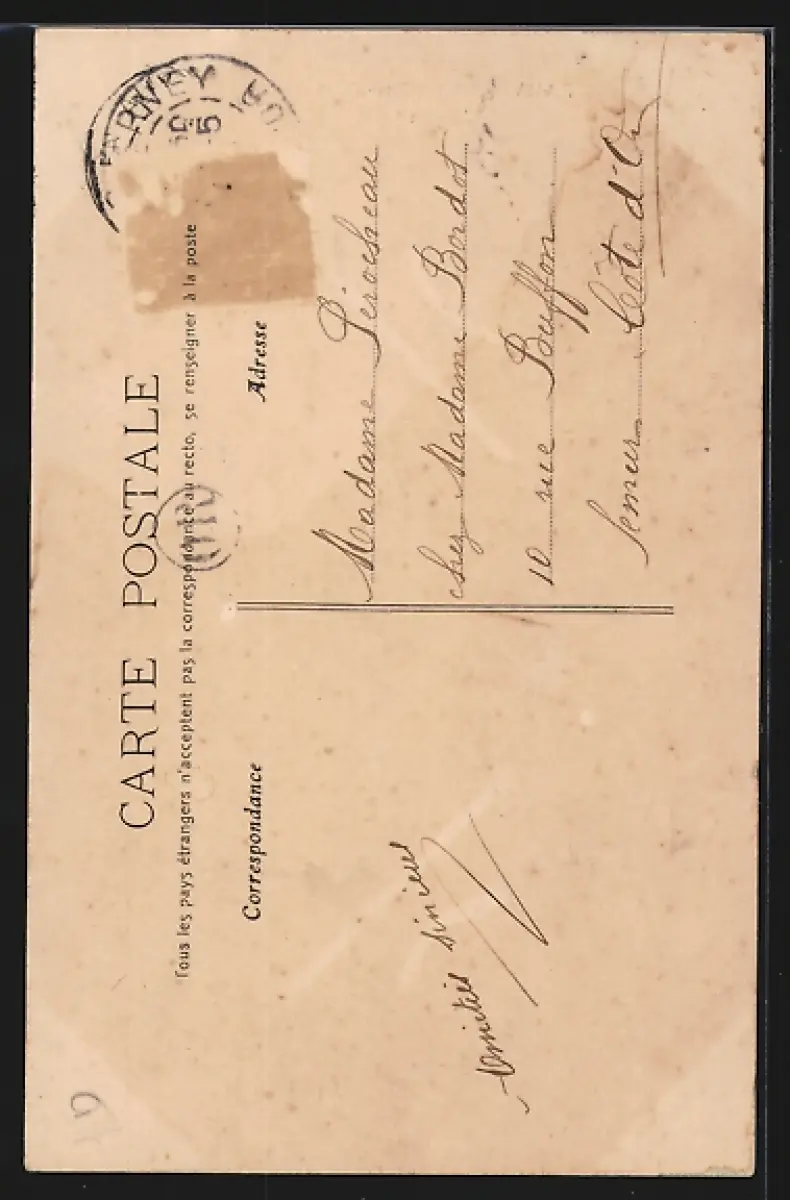 CARTE POSTALE
Tous les pays étrangers n'acceptent pas la correspondance au recto, se renseigner à la poste
Correspondance
Adresse
Madame
chez Madame Bordot
10 rue Buffon
Semur Côte d'Or
Amitiés sincères